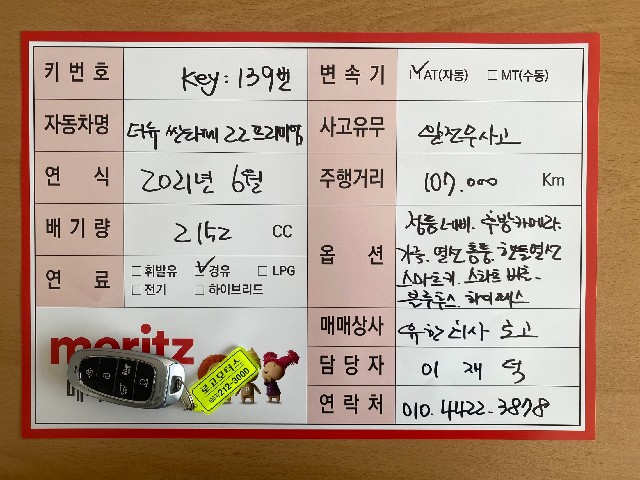 키 번호 Key : 139번
변속기 ☑AT(자동) □ MT(수동)
자동차명 더뉴 싼타페 2.2 프리미엄
사고유무 완전무사고
연 식 2021년 6월
주행거리 107.000 Km
배기량 2152 CC
옵 션 정품네비. 후방카메라.
가죽. 열선통풍. 핸들열선
스마트키. 스마트 버튼.
블루투스. 하이패스
연 료 □ 휘발유 ☑ 경유 □ LPG
□ 전기 □ 하이브리드
매매상사 유한회사 로고
moritz
담당자 이 재 덕
로고모터스
212-3000
연락처 010.4422.3878